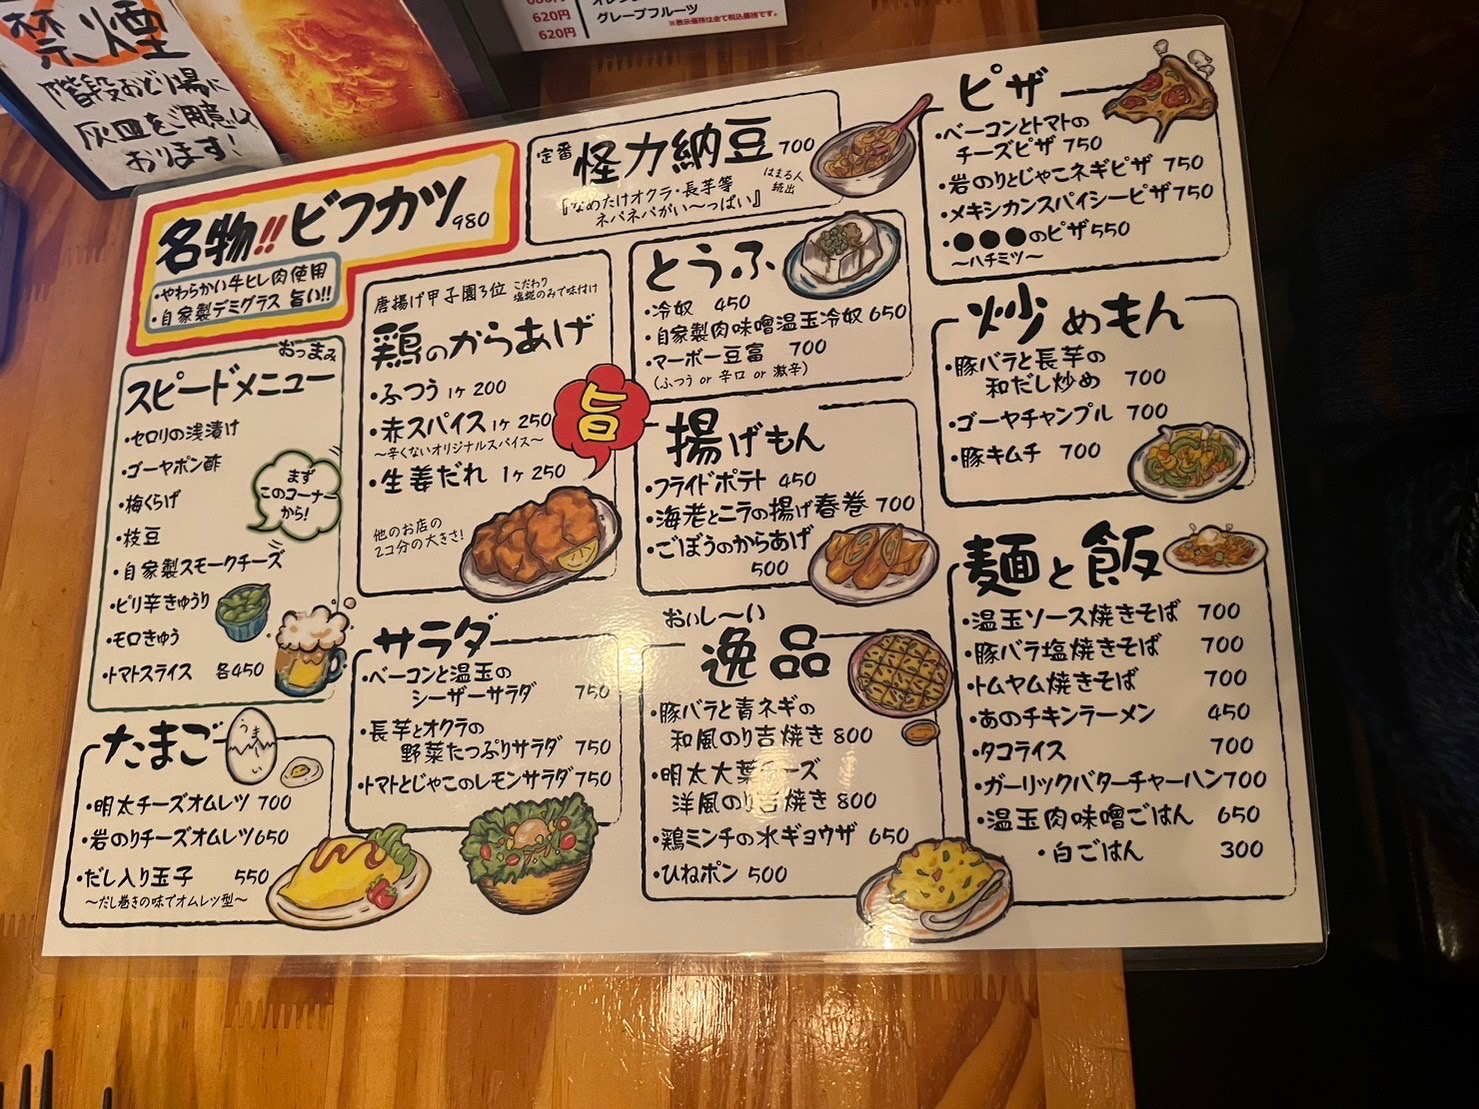 禁煙
階段おどり場に
灰皿をご用意して
おります!
620円
620円
グレープフルーツ
※表示価格は全て税込価格です。
名物!!ビフカツ 980
・やわらかい牛ヒレ肉使用
・自家製デミグラス 旨い!!
定番 怪力納豆 700
『なめたけオクラ・長芋等
ネバネバがい〜っぱい』
はまる人
続出
ピザ
・ベーコンとトマトの
チーズピザ 750
・岩のりとじゃこネギピザ 750
・メキシカンスパイシーピザ 750
・●●●のピザ 550
〜ハチミツ〜
おつまみ
スピードメニュー
・セロリの浅漬け
・ゴーヤポン酢
・梅くらげ
・枝豆
・自家製スモークチーズ
・ピリ辛きゅうり
・モロきゅう
・トマトスライス 各450
まず
このコーナー
から!
唐揚げ甲子園3位
こだわり
塩糀のみで味付け
鶏のからあげ
・ふつう 1ヶ 200
・赤スパイス 1ヶ 250
〜辛くないオリジナルスパイス〜
・生姜だれ 1ヶ 250
他のお店の
2コ分の大きさ!
旨
とうふ
・冷奴 450
・自家製肉味噌温玉冷奴 650
・マーボー豆富 700
(ふつう or 辛口 or 激辛)
揚げもん
・フライドポテト 450
・海老とニラの揚げ春巻 700
・ごぼうのからあげ
500
炒めもん
・豚バラと長芋の
和だし炒め 700
・ゴーヤチャンプル 700
・豚キムチ 700
たまご
うま
〜い
・明太チーズオムレツ 700
・岩のりチーズオムレツ 650
・だし入り玉子 550
〜だし巻きの味でオムレツ型〜
サラダ
・ベーコンと温玉の
シーザーサラダ 750
・長芋とオクラの
野菜たっぷりサラダ 750
・トマトとじゃこのレモンサラダ 750
おいし〜い
逸品
・豚バラと青ネギの
和風のり吉焼き 800
・明太大葉チーズ
洋風のり吉焼き 800
・鶏ミンチの水ギョウザ 650
・ひねポン 500
麺と飯
・温玉ソース焼きそば 700
・豚バラ塩焼きそば 700
・トムヤム焼きそば 700
・あのチキンラーメン 450
・タコライス 700
・ガーリックバターチャーハン 700
・温玉肉味噌ごはん 650
・白ごはん 300